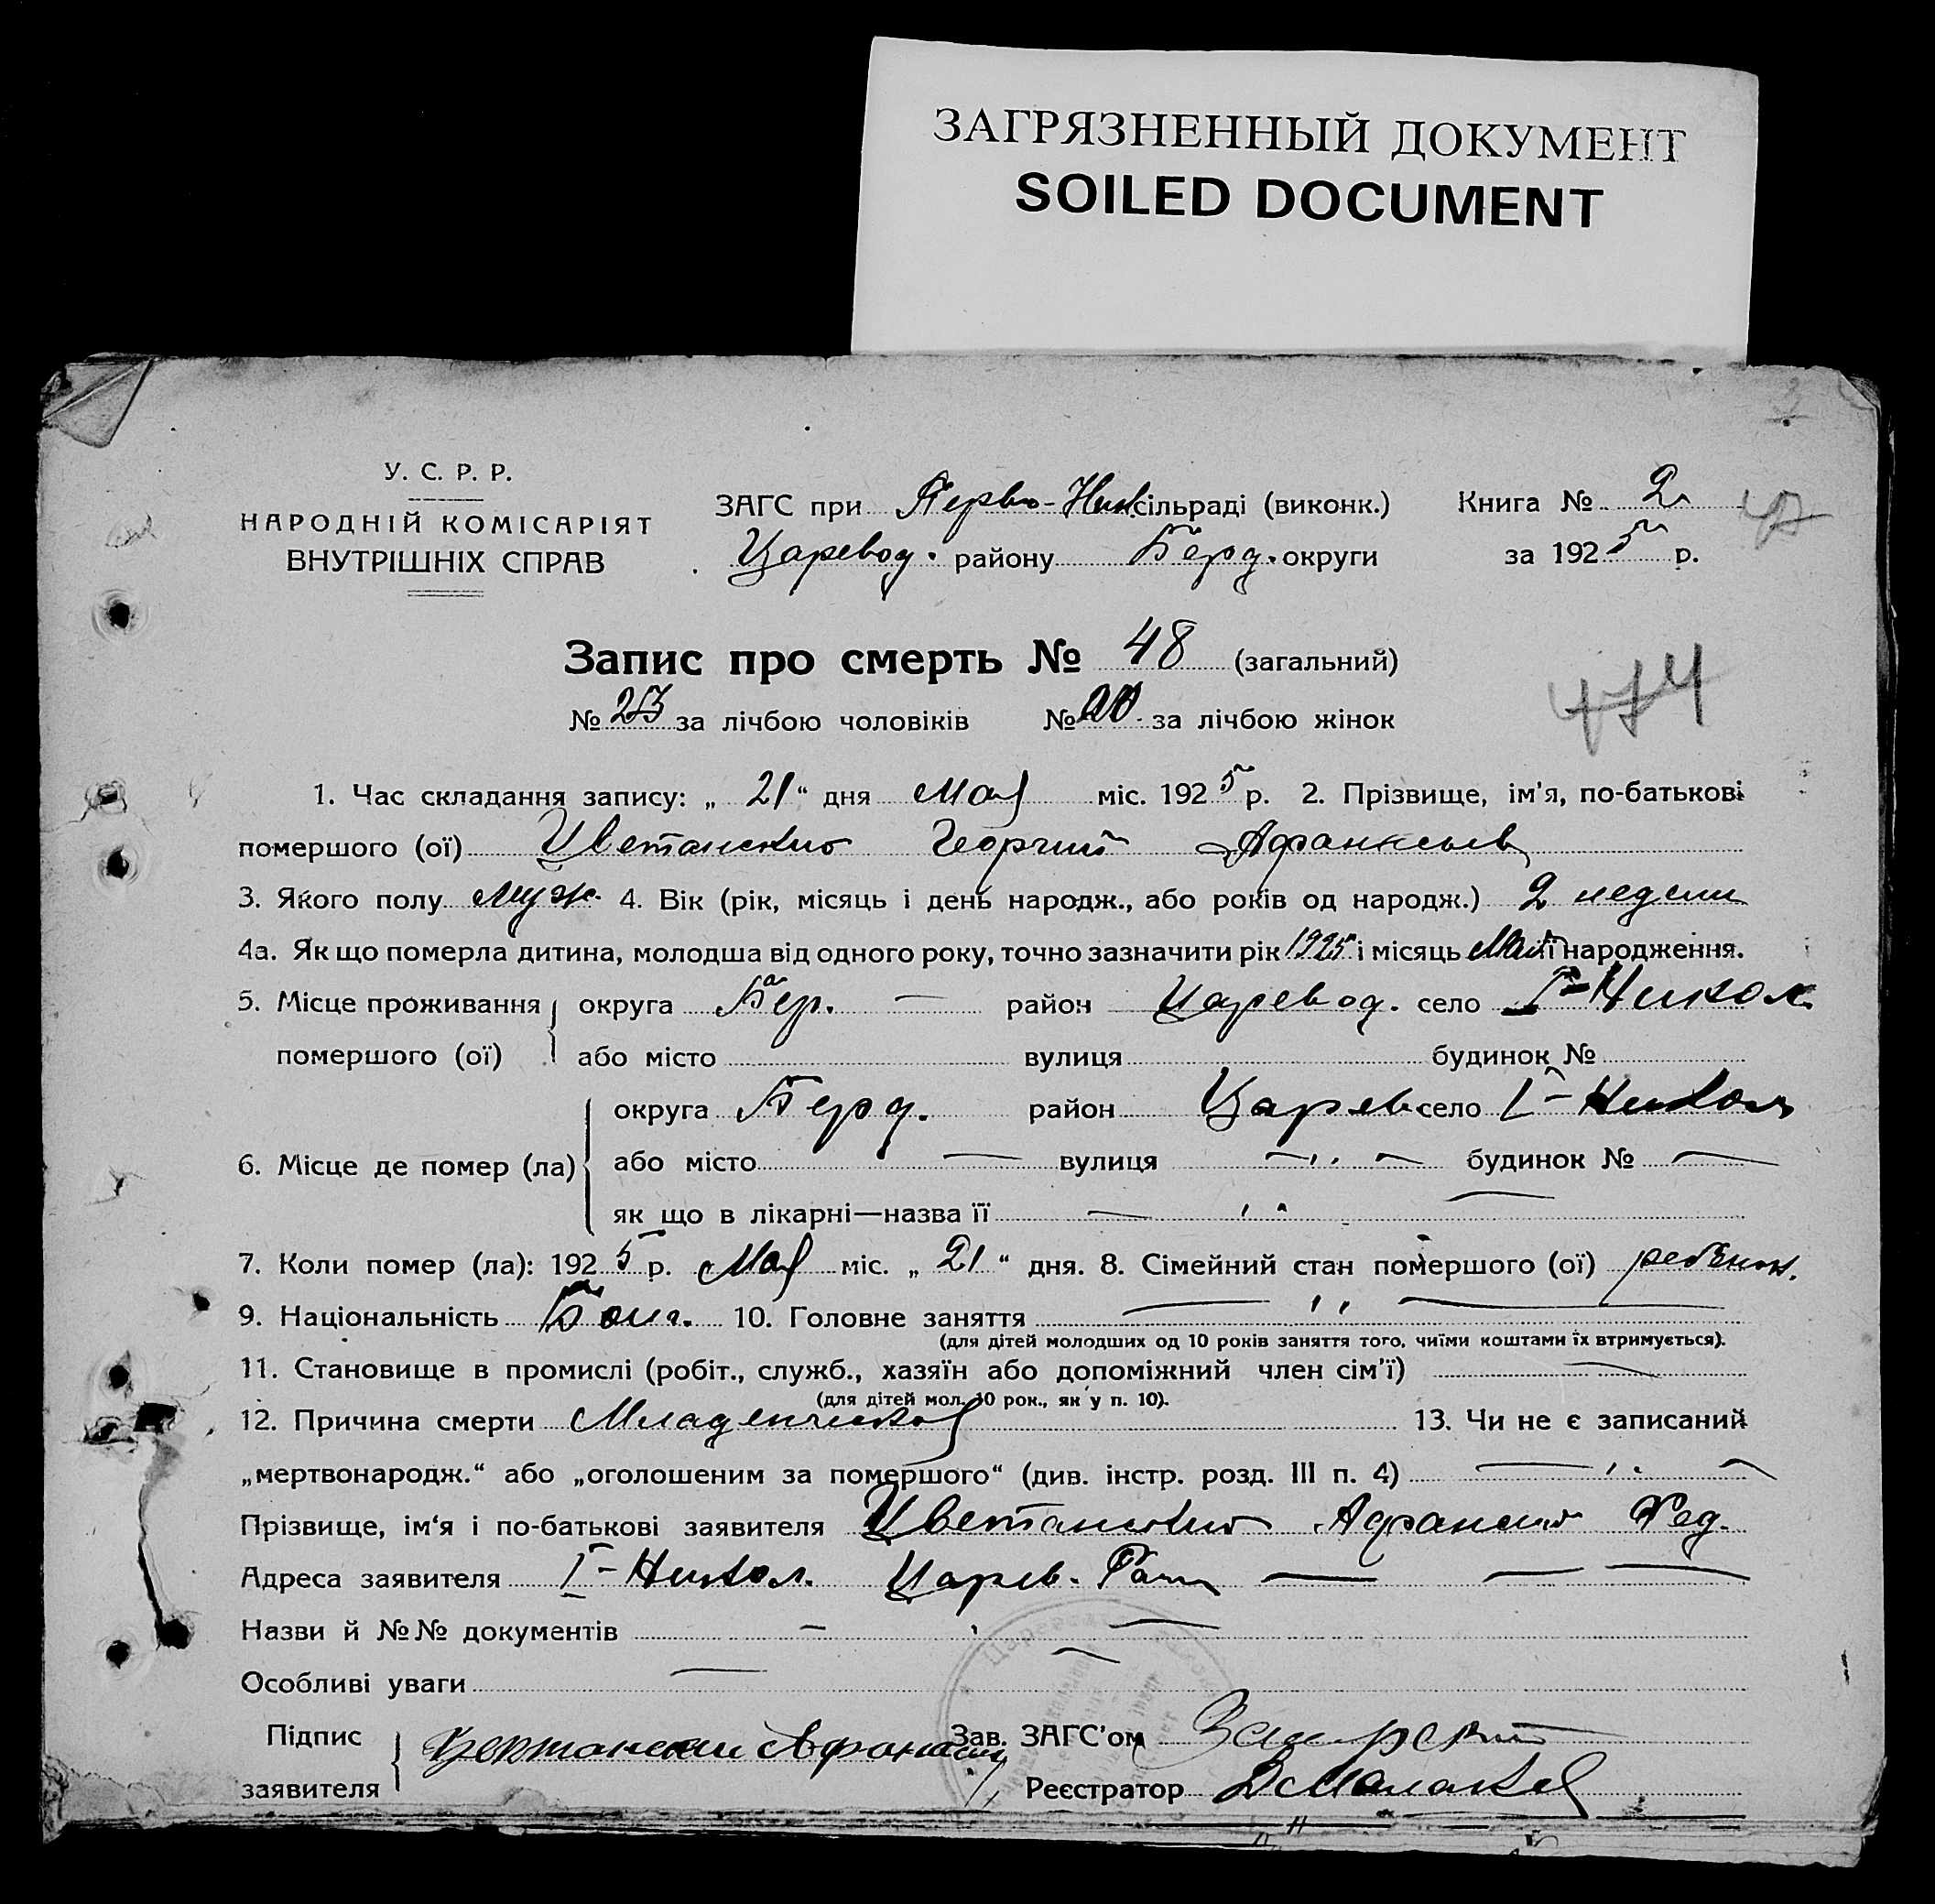 ЗАГРЯЗНЕННЫЙ ДОКУМЕНТ
SOILED DOCUMENT
У. С. Р. Р.
НАРОДНІЙ КОМІСАРІЯТ
ВНУТРІШНІХ СПРАВ
ЗАГС при Перво-Ник. сільраді (виконк.) Книга № 2
Царевод. району Берд. округи за 1925 р.
47
Запис про смерть № 48 (загальний)
№ за лічбою чоловіків № за лічбою жінок
474
1. Час складання запису: „ 21 “ дня Мая міс. 1925 р. 2. Прізвище, ім'я, по-батькові
помершого (ої) Цветанский Георгий
3. Якого полу муж. 4. Вік (рік, місяць і день народж., або років од народж.) 2 недели
4а. Як що померла дитина, молодша від одного року, точно зазначити рік 1925 і місяць Май її народження.
5. Місце проживання округа Бер. — район Царевод. село I-Никол.
помершого (ої) або місто вулиця будинок №
округа Берд. район Царев село I-Никол
6. Місце де помер (ла) або місто — вулиця — будинок № —
як що в лікарні—назва її — —
7. Коли помер (ла): 1925 р. Мая міс. „ 21 “ дня. 8. Сімейний стан помершого (ої) ребенок.
9. Національність Болг. 10. Головне заняття — " —
(для дітей молодших од 10 років заняття того, чиїми коштами їх втримується).
11. Становище в промислі (робіт., служб., хазяїн або допоміжний член сім'ї) —
(для дітей мол. 10 рок., як у п. 10).
12. Причина смерти Младенческая 13. Чи не є записаний
„мертвонародж.“ або „оголошеним за помершого“ (див. інстр. розд. III п. 4) — —
Прізвище, ім'я і по-батькові заявителя Цветанский Фед.
Адреса заявителя I-Никол. Царев. — — —
Назви й №№ документів — —
Особливі уваги — —
Підпис Зав. ЗАГС'ом
заявителя Реєстратор